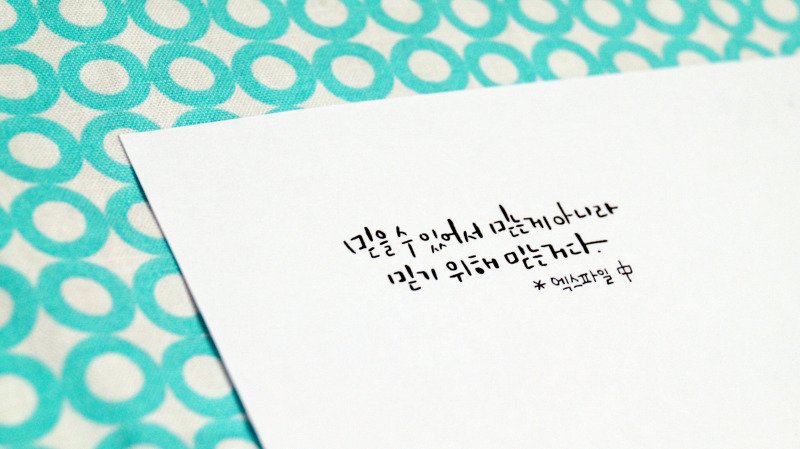 믿을 수 있어서 믿는게 아니라
믿기 위해 믿는거다.
* 엑스파일 中